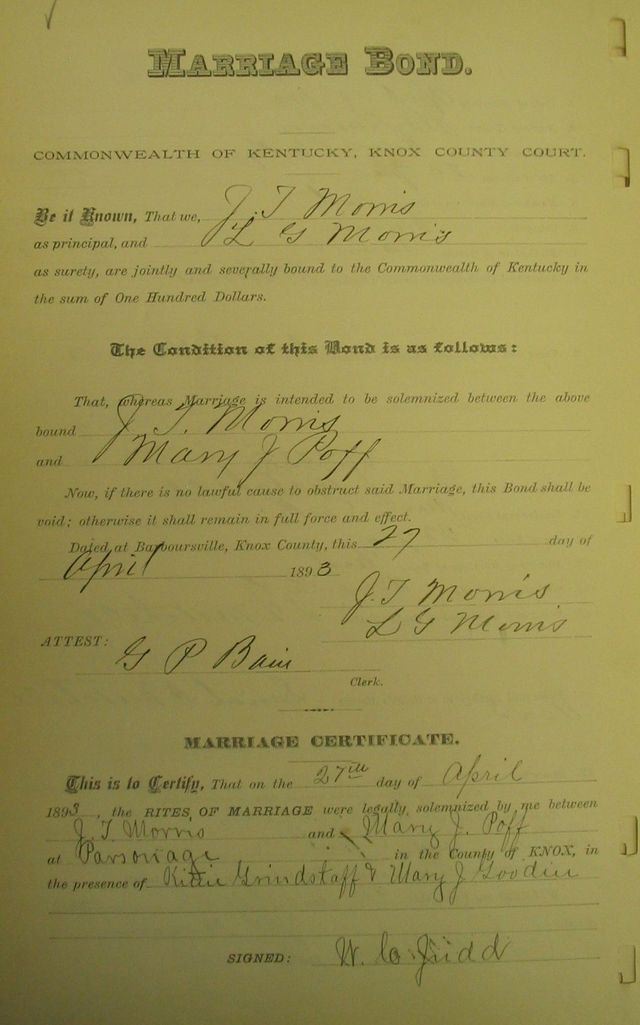 MARRIAGE BOND.
COMMONWEALTH OF KENTUCKY, KNOX COUNTY COURT.
Be it Known, That we, J. T Morris
as principal, and L G Morris
as surety, are jointly and severally bound to the Commonwealth of Kentucky in
the sum of One Hundred Dollars.
The Condition of this Bond is as follows:
That, whereas Marriage is intended to be solemnized between the above
bound J. T. Morris
and Mary J Poff
Now, if there is no lawful cause to obstruct said Marriage, this Bond shall be
void; otherwise it shall remain in full force and effect.
Dated at Barboursville, Knox County, this 27 day of
April 1893
J. T Morris
L G Morris
ATTEST:
G P Bain
Clerk.
MARRIAGE CERTIFICATE.
This is to Certify, That on the 27th day of April
1893, the RITES OF MARRIAGE were legally solemnized by me between
J. T Morris and Mary J. Poff
at Parsonage in the County of KNOX, in
the presence of Kittie Grindstaff & Mary J Goodin
SIGNED: W. C. Judd